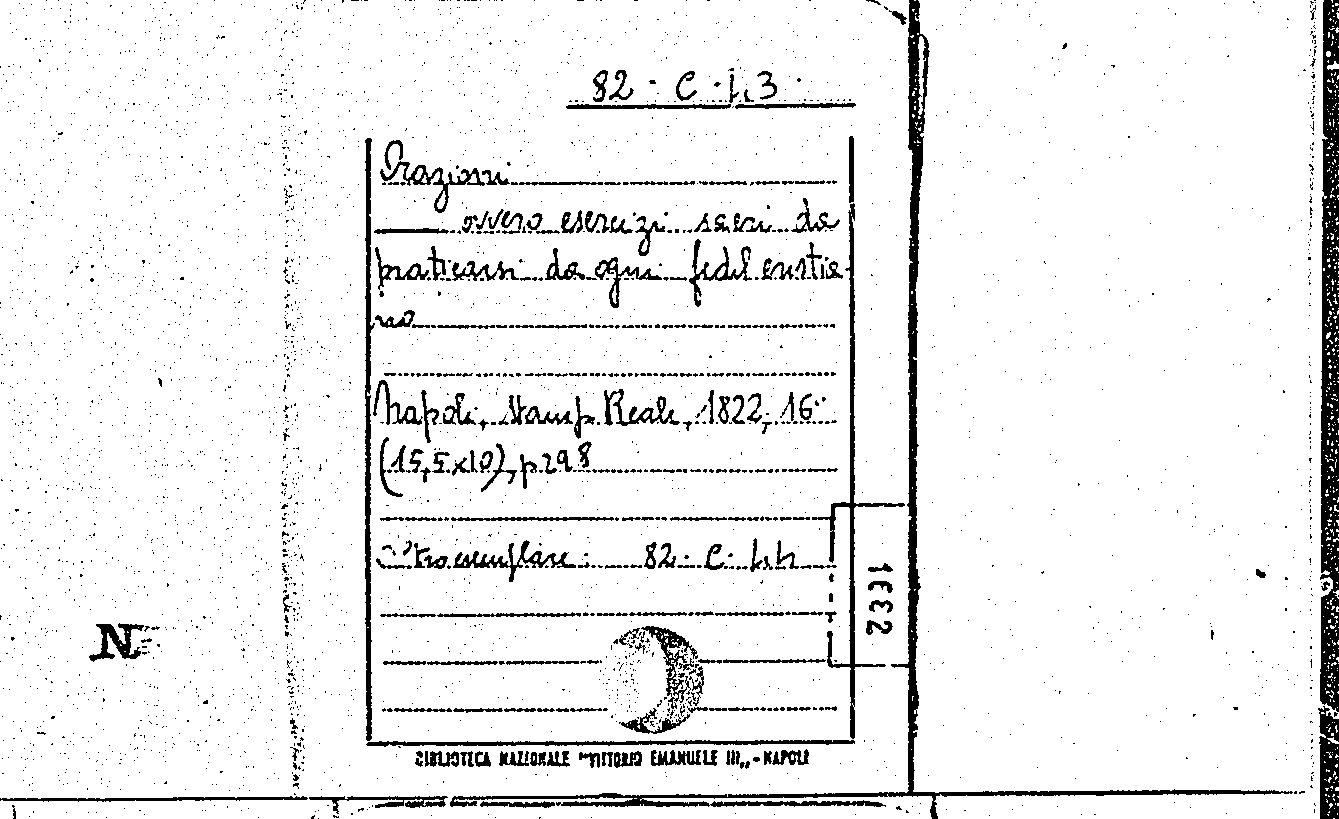 82 - C - 43
Orazioni
ovvero esercizi sacri da
praticarsi da ogni fedel cristia-
no
Napoli, Stamp. Reale, 1822, 16°
(15,5x10), p 298
Altro esemplare: 82 - C - 44
1882
N
BIBLIOTECA NAZIONALE "VITTORIO EMANUELE III„ - NAPOLI